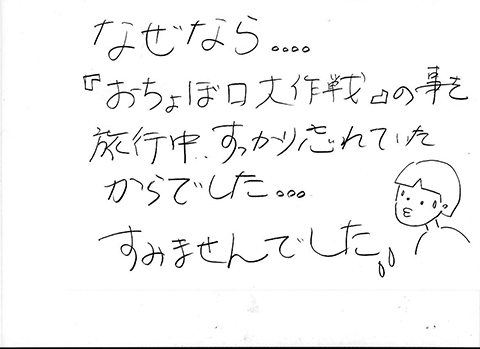 なぜなら....
『おちょぼ口大作戦』の事を
旅行中、すっかり忘れていた
からでした...
すみませんでした